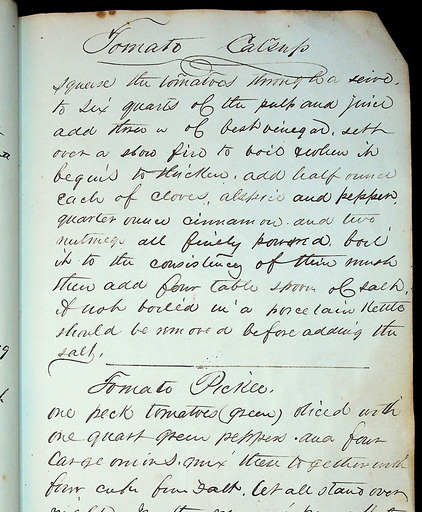 Tomato Catsup
Squeese the tomatoes through a seive.
to six quarts of the pulp and juice
add three " of best vinegar, set
over a slow fire to boil & when it
begins to thicken. add half ounce
each of cloves, alspice and pepper,
quarter ounce cinnamon. and two
nutmegs all finely powered. boil
it to the consistency of thin mush
then add four table spoons of salt,
if not boiled in a porcelain Kettle
should be removed before adding the
salt.
Tomato Pickle.
one peck tomatoes (green) sliced with
one quart green peppers. and four
large onions. mix these together with
four cubs fine salt. let all stand over